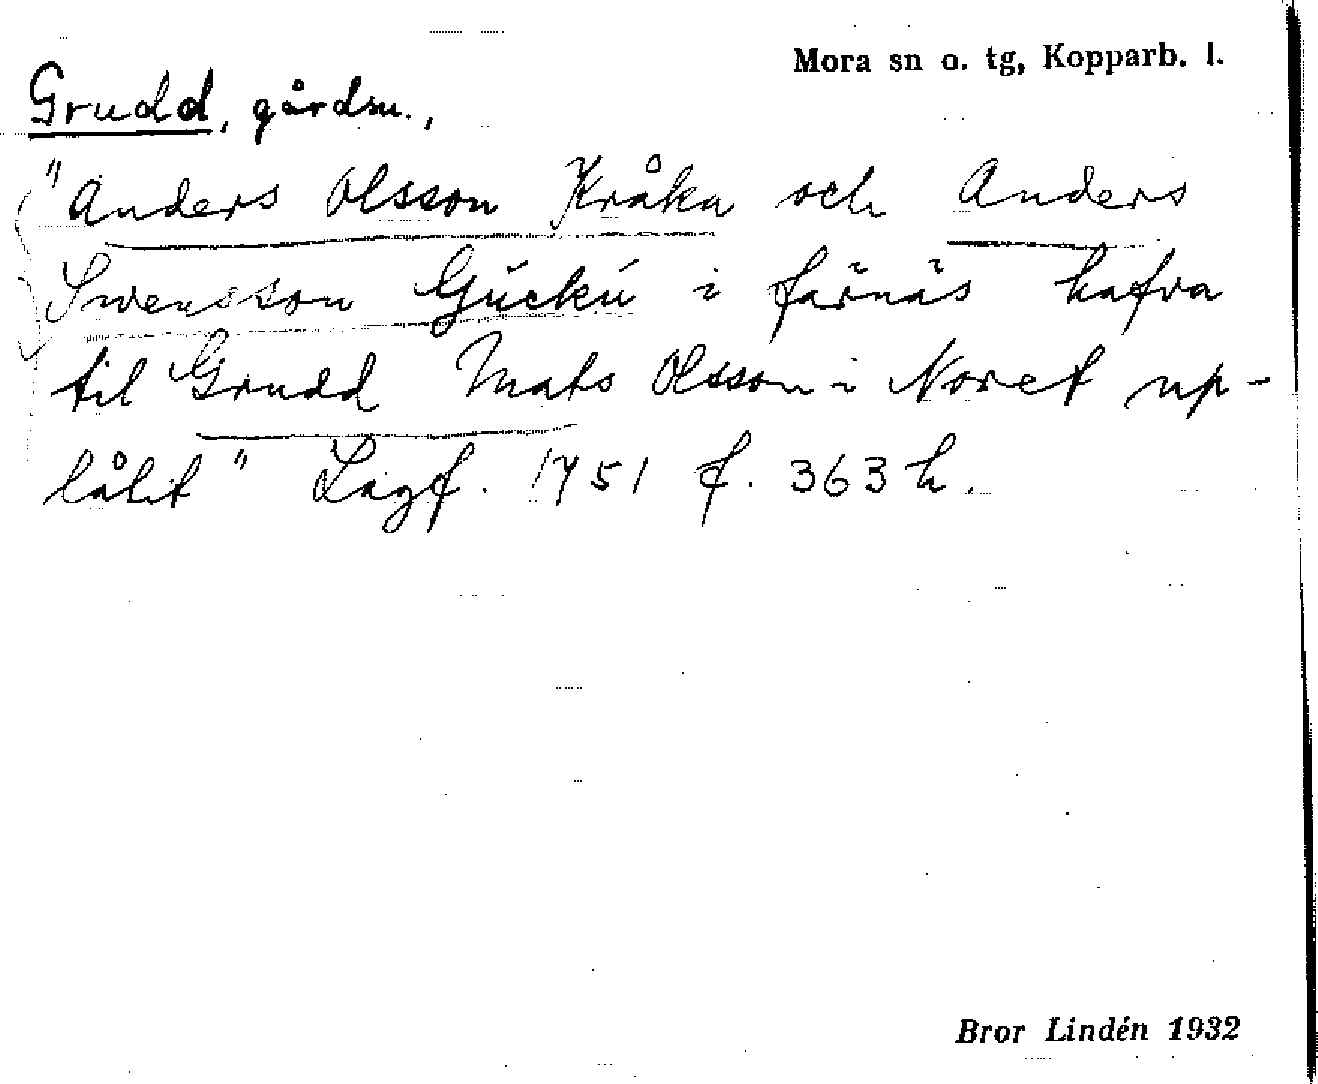 Mora sn o. tg, Kopparb. l.
Grudd, gårdsn.,
"Anders Olsson Kråku och Anders
Swensson Gŭckŭ i färnäs hafva
til Grudd Mats Olsson i Noret up-
låtit" Lagf. 1751 f. 363 h.
Bror Lindén 1932